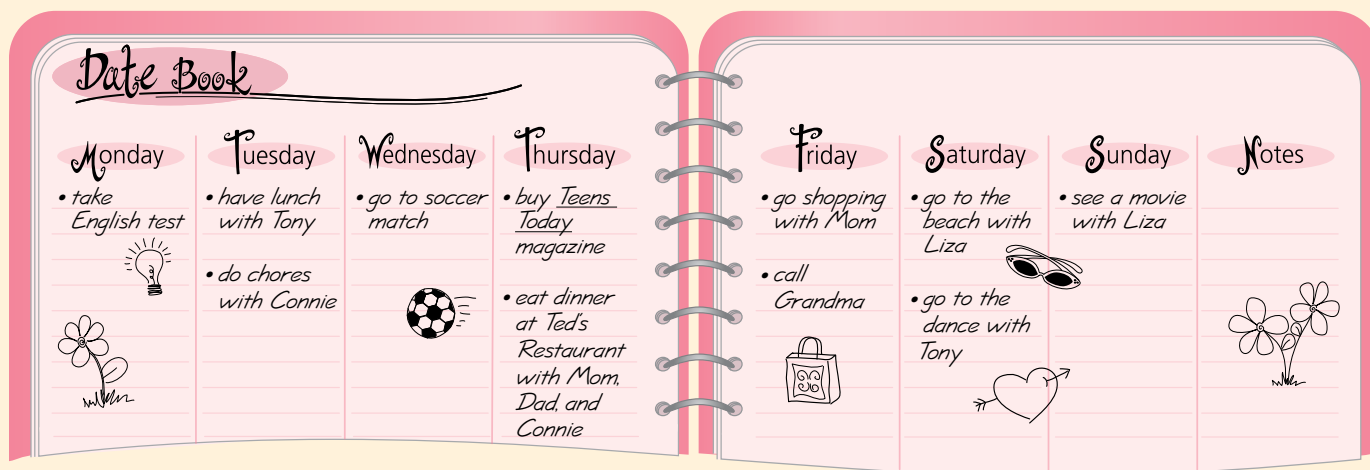 Date Book
Monday
• take
English test
Tuesday
• have lunch
with Tony
• do chores
with Connie
Wednesday
• go to soccer
match
Thursday
• buy Teens
Today
magazine
• eat dinner
at Ted's
Restaurant
with Mom,
Dad, and
Connie
Friday
• go shopping
with Mom
• call
Grandma
Saturday
• go to the
beach with
Liza
• go to the
dance with
Tony
Sunday
• see a movie
with Liza
Notes